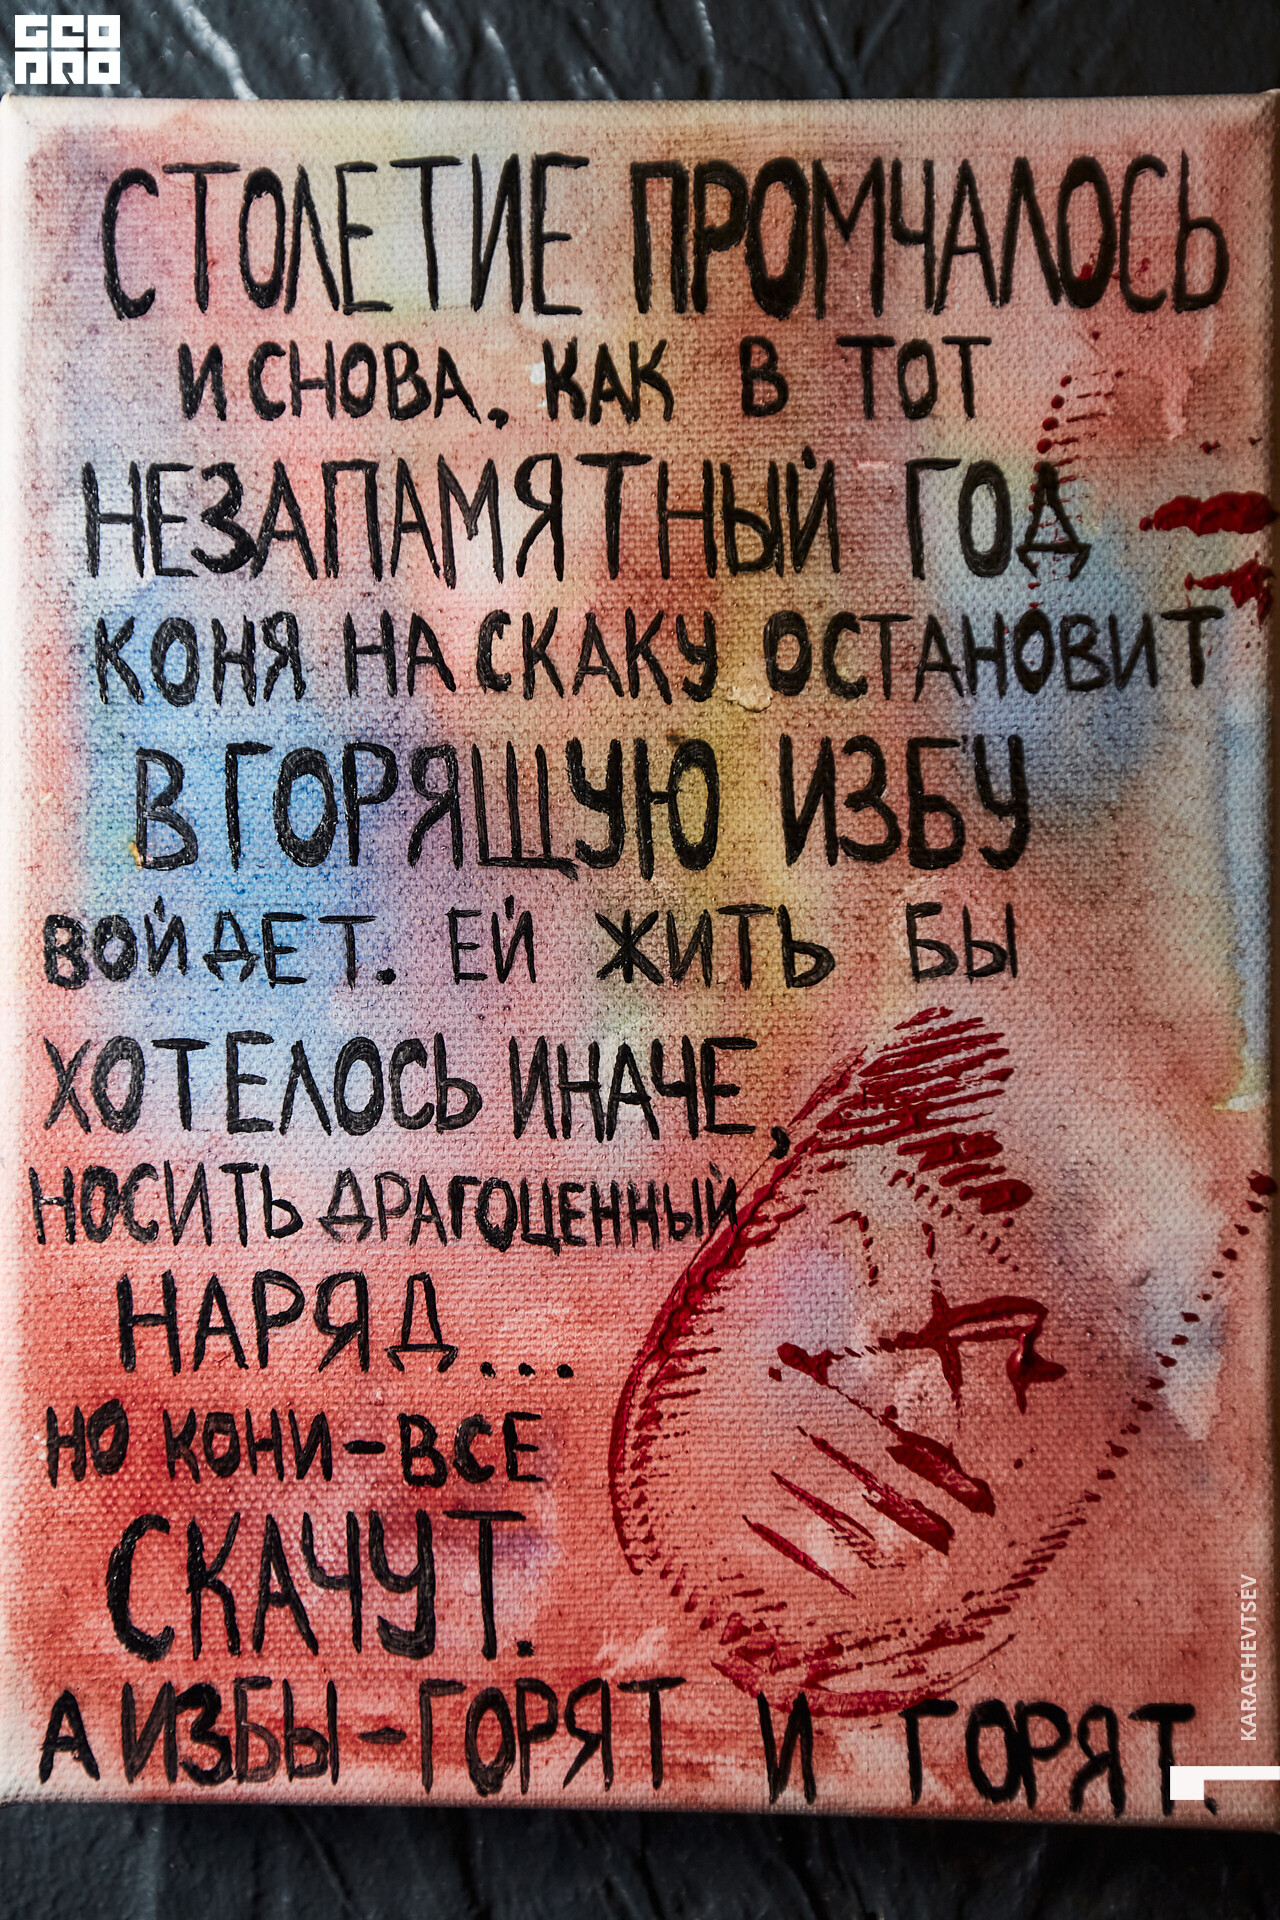 GEO
PRO
СТОЛЕТИЕ ПРОМЧАЛОСЬ
И СНОВА, КАК В ТОТ
НЕЗАПАМЯТНЫЙ ГОД
КОНЯ НА СКАКУ ОСТАНОВИТ
В ГОРЯЩУЮ ИЗБУ
ВОЙДЕТ. ЕЙ ЖИТЬ БЫ
ХОТЕЛОСЬ ИНАЧЕ,
НОСИТЬ ДРАГОЦЕННЫЙ
НАРЯД...
НО КОНИ-ВСЕ
СКАЧУТ.
А ИЗБЫ-ГОРЯТ И ГОРЯТ.
KARACHEVTSEV